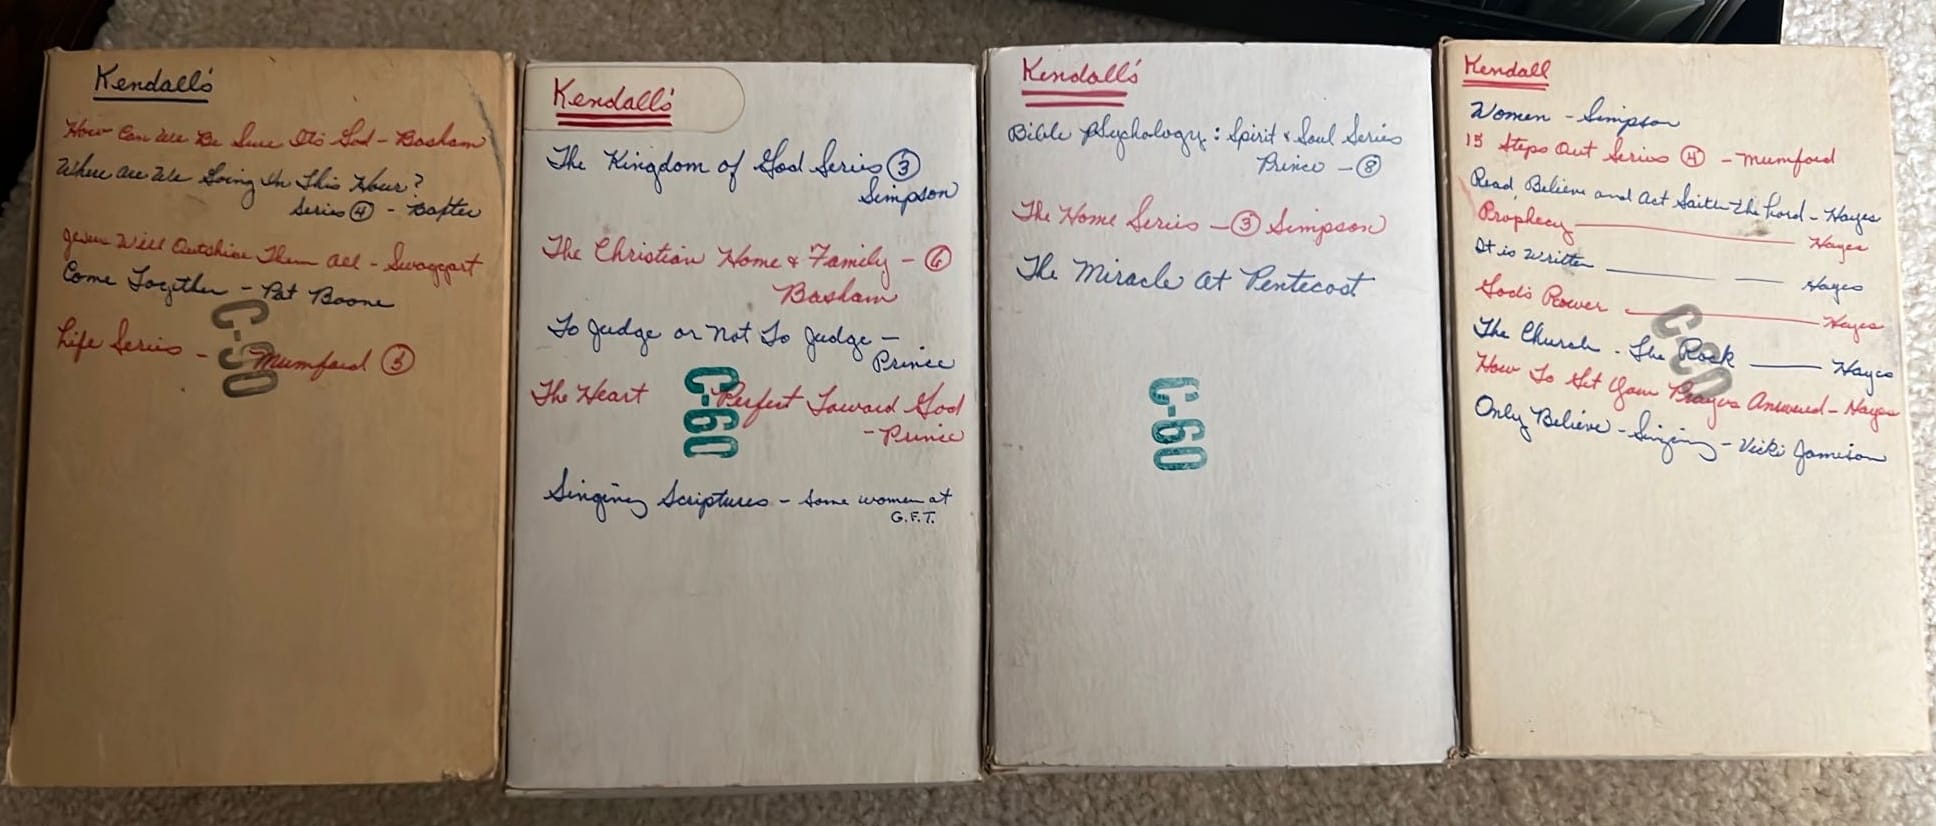 Kendall's
How Can We Be Sure It's God - Basham
Where Are We Going In This Hour?
Series ④ - Baxter
Jesus Will Outshine Them All - Swaggart
Come Together - Pat Boone
C-90
Life Series - Mumford ③
Kendall's
The Kingdom of God Series ③
Simpson
The Christian Home & Family - ⑥
Basham
To Judge or Not To Judge -
Prince
The Heart Perfect Toward God
- Prince
C-60
Singing Scriptures - Some women at
G.F.T.
Kendall's
Bible Psychology: Spirit & Soul Series
Prince - ⑧
The Home Series - ③ Simpson
The Miracle At Pentecost
C-60
Kendall
Women - Simpson
15 Steps Out Series ④ - Mumford
Read Believe and Act Saith the Lord - Hayes
Prophecy Hayes
It is Written Hayes
God's Power Hayes
The Church - The Rock Hayes
How To Get Your Prayers Answered - Hayes
Only Believe - Singing - Vicki Jamison